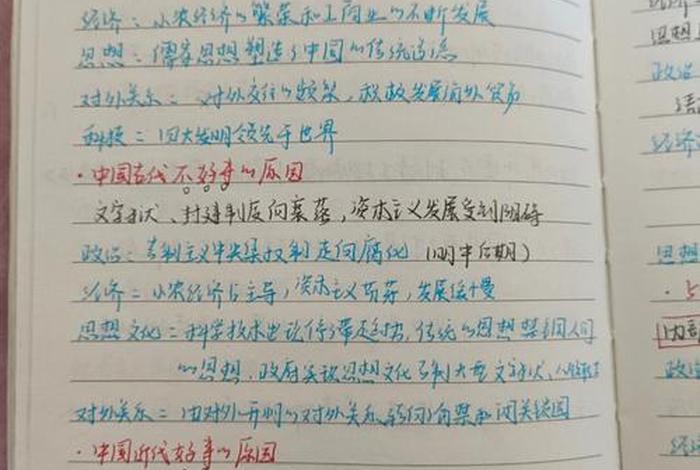 经济：小农经济的繁荣和工商业的不断发展
思想：儒家思想塑造了中国的传统道德
对外关系：对外交往的频繁，积极发展海外贸易
科技：四大发明领先于世界
·中国古代不好事的原因
文字狱、封建制度向衰落，资本主义发展受到阻碍
政治：专制主义中央集权制走向腐化（明中后期）
经济：小农经济占主导，资本主义萌芽，发展缓慢
思想文化：科学技术出现停滞趋势，传统的思想禁锢人们
的思想，政府实行思想文化专制大型文字狱，
对外关系：由对外开明的对外关系转向海禁和闭关锁国
·中国近代好事的原因
思想
政治
经济
思想
政治
经